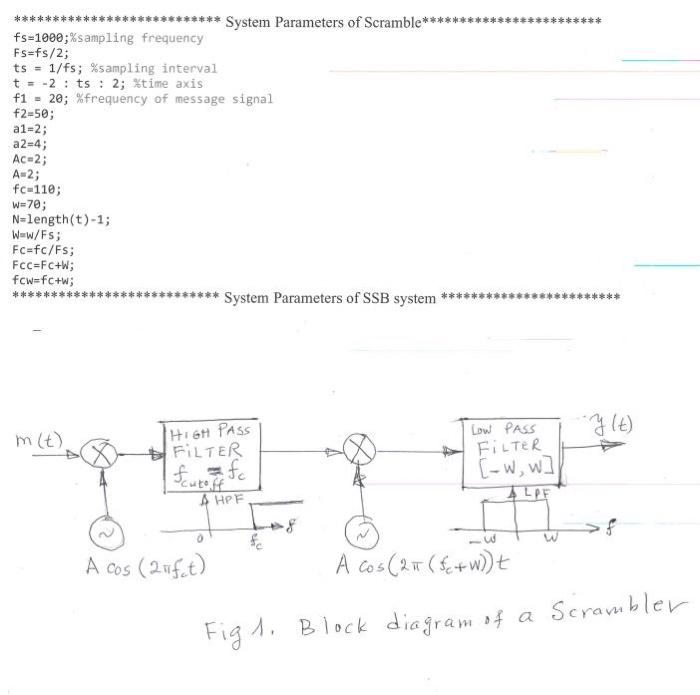 *************************** System Parameters of Scramble************************
fs=1000;%sampling frequency
Fs=fs/2;
ts = 1/fs; %sampling interval
t = -2 : ts : 2; %time axis
f1 = 20; %frequency of message signal
f2=50;
a1=2;
a2=4;
Ac=2;
A=2;
fc=110;
w=70;
N=length(t)-1;
W=w/Fs;
Fc=fc/Fs;
Fcc=Fc+W;
fcw=fc+w;
*************************** System Parameters of SSB system ************************
m(t)
HIGH PASS
FILTER
f_cutoff = f_c
HPF
0 f_c f
~
A cos (2πf_c t)
~
A cos(2π(f_c+W))t
Low PASS
FiLTER
[-W, W]
LPF
-W W f
y(t)
Fig 1. Block diagram of a Scrambler